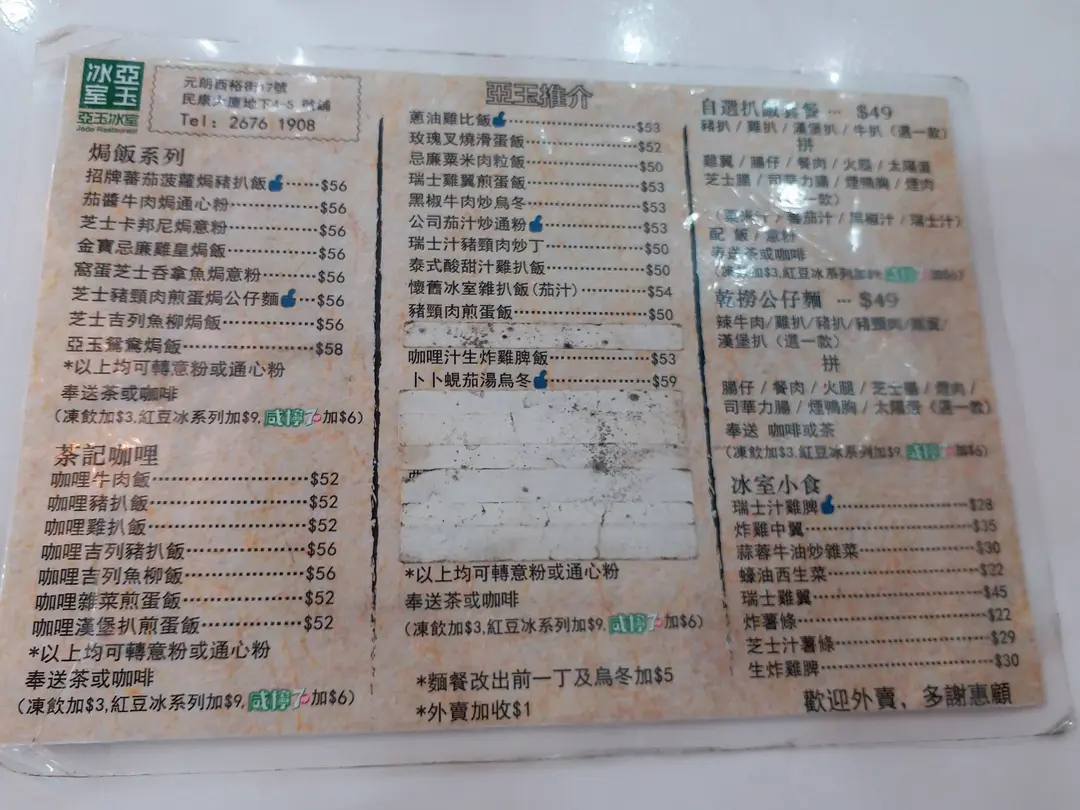 冰亞
室玉
亞玉冰室
Jade Restaurant
元朗西裕街17號
民康大廈地下4-5 號舖
Tel: 2676 1908
焗飯系列
招牌蕃茄菠蘿焗豬扒飯 $56
茄醬牛肉焗通心粉 $56
芝士卡邦尼焗意粉 $56
金寶忌廉雞皇焗飯 $56
窩蛋芝士吞拿魚焗意粉 $56
芝士豬頸肉煎蛋焗公仔麵 $56
芝士吉列魚柳焗飯 $56
亞玉鴛鴦焗飯 $58
*以上均可轉意粉或通心粉
奉送茶或咖啡
(凍飲加$3,紅豆冰系列加$9,咸檸7加$6)
茶記咖哩
咖哩牛肉飯 $52
咖哩豬扒飯 $52
咖哩雞扒飯 $52
咖哩吉列豬扒飯 $56
咖哩吉列魚柳飯 $56
咖哩雜菜煎蛋飯 $52
咖哩漢堡扒煎蛋飯 $52
*以上均可轉意粉或通心粉
奉送茶或咖啡
(凍飲加$3,紅豆冰系列加$9,咸檸7加$6)
亞玉推介
蔥油雞比飯 $53
玫瑰叉燒滑蛋飯 $52
忌廉粟米肉粒飯 $50
瑞士雞翼煎蛋飯 $53
黑椒牛肉炒烏冬 $53
公司茄汁炒通粉 $53
瑞士汁豬頸肉炒丁 $50
泰式酸甜汁雞扒飯 $50
懷舊冰室雜扒飯(茄汁) $54
豬頸肉煎蛋飯 $50
咖哩汁生炸雞脾飯 $53
卜卜蜆茄湯烏冬 $59
*以上均可轉意粉或通心粉
奉送茶或咖啡
(凍飲加$3,紅豆冰系列加$9,咸檸7加$6)
*麵餐改出前一丁及烏冬加$5
*外賣加收$1
自選扒飯套餐 ... $49
豬扒 / 雞扒 / 漢堡扒 / 牛扒 (選一款)
拼
雞翼 / 腸仔 / 餐肉 / 火腿 / 太陽蛋
芝士腸 / 司華力腸 / 煙鴨胸 / 煙肉
一款)
(粟米汁 / 蕃茄汁 / 黑椒汁 / 瑞士汁)
配 飯 / 意粉
奉送茶或咖啡
(凍飲加$3,紅豆冰系列加$9,咸檸7加$6)
乾撈公仔麵 ... $49
辣牛肉/雞扒/豬扒/豬頸肉/雞蛋/
漢堡扒 (選一款)
拼
腸仔 / 餐肉 / 火腿 / 芝士腸 / 煙肉 /
司華力腸 / 煙鴨胸 / 太陽蛋 (選一款)
奉送 咖啡或茶
(凍飲加$3,紅豆冰系列加$9,咸檸7加$6)
冰室小食
瑞士汁雞脾 $28
炸雞中翼 $35
蒜蓉牛油炒雜菜 $30
蠔油西生菜 $22
瑞士雞翼 $45
炸薯條 $22
芝士汁薯條 $29
生炸雞脾 $30
歡迎外賣，多謝惠顧